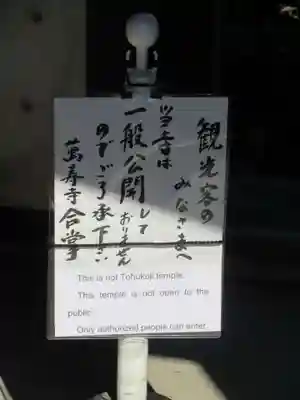 観光客の
みなさまへ
当寺は
一般公開して
おりません
のでご了承下さい
萬寿寺合掌
This is not Tofukuji temple.
This temple is not open to the
public.
Only authorized people can enter.